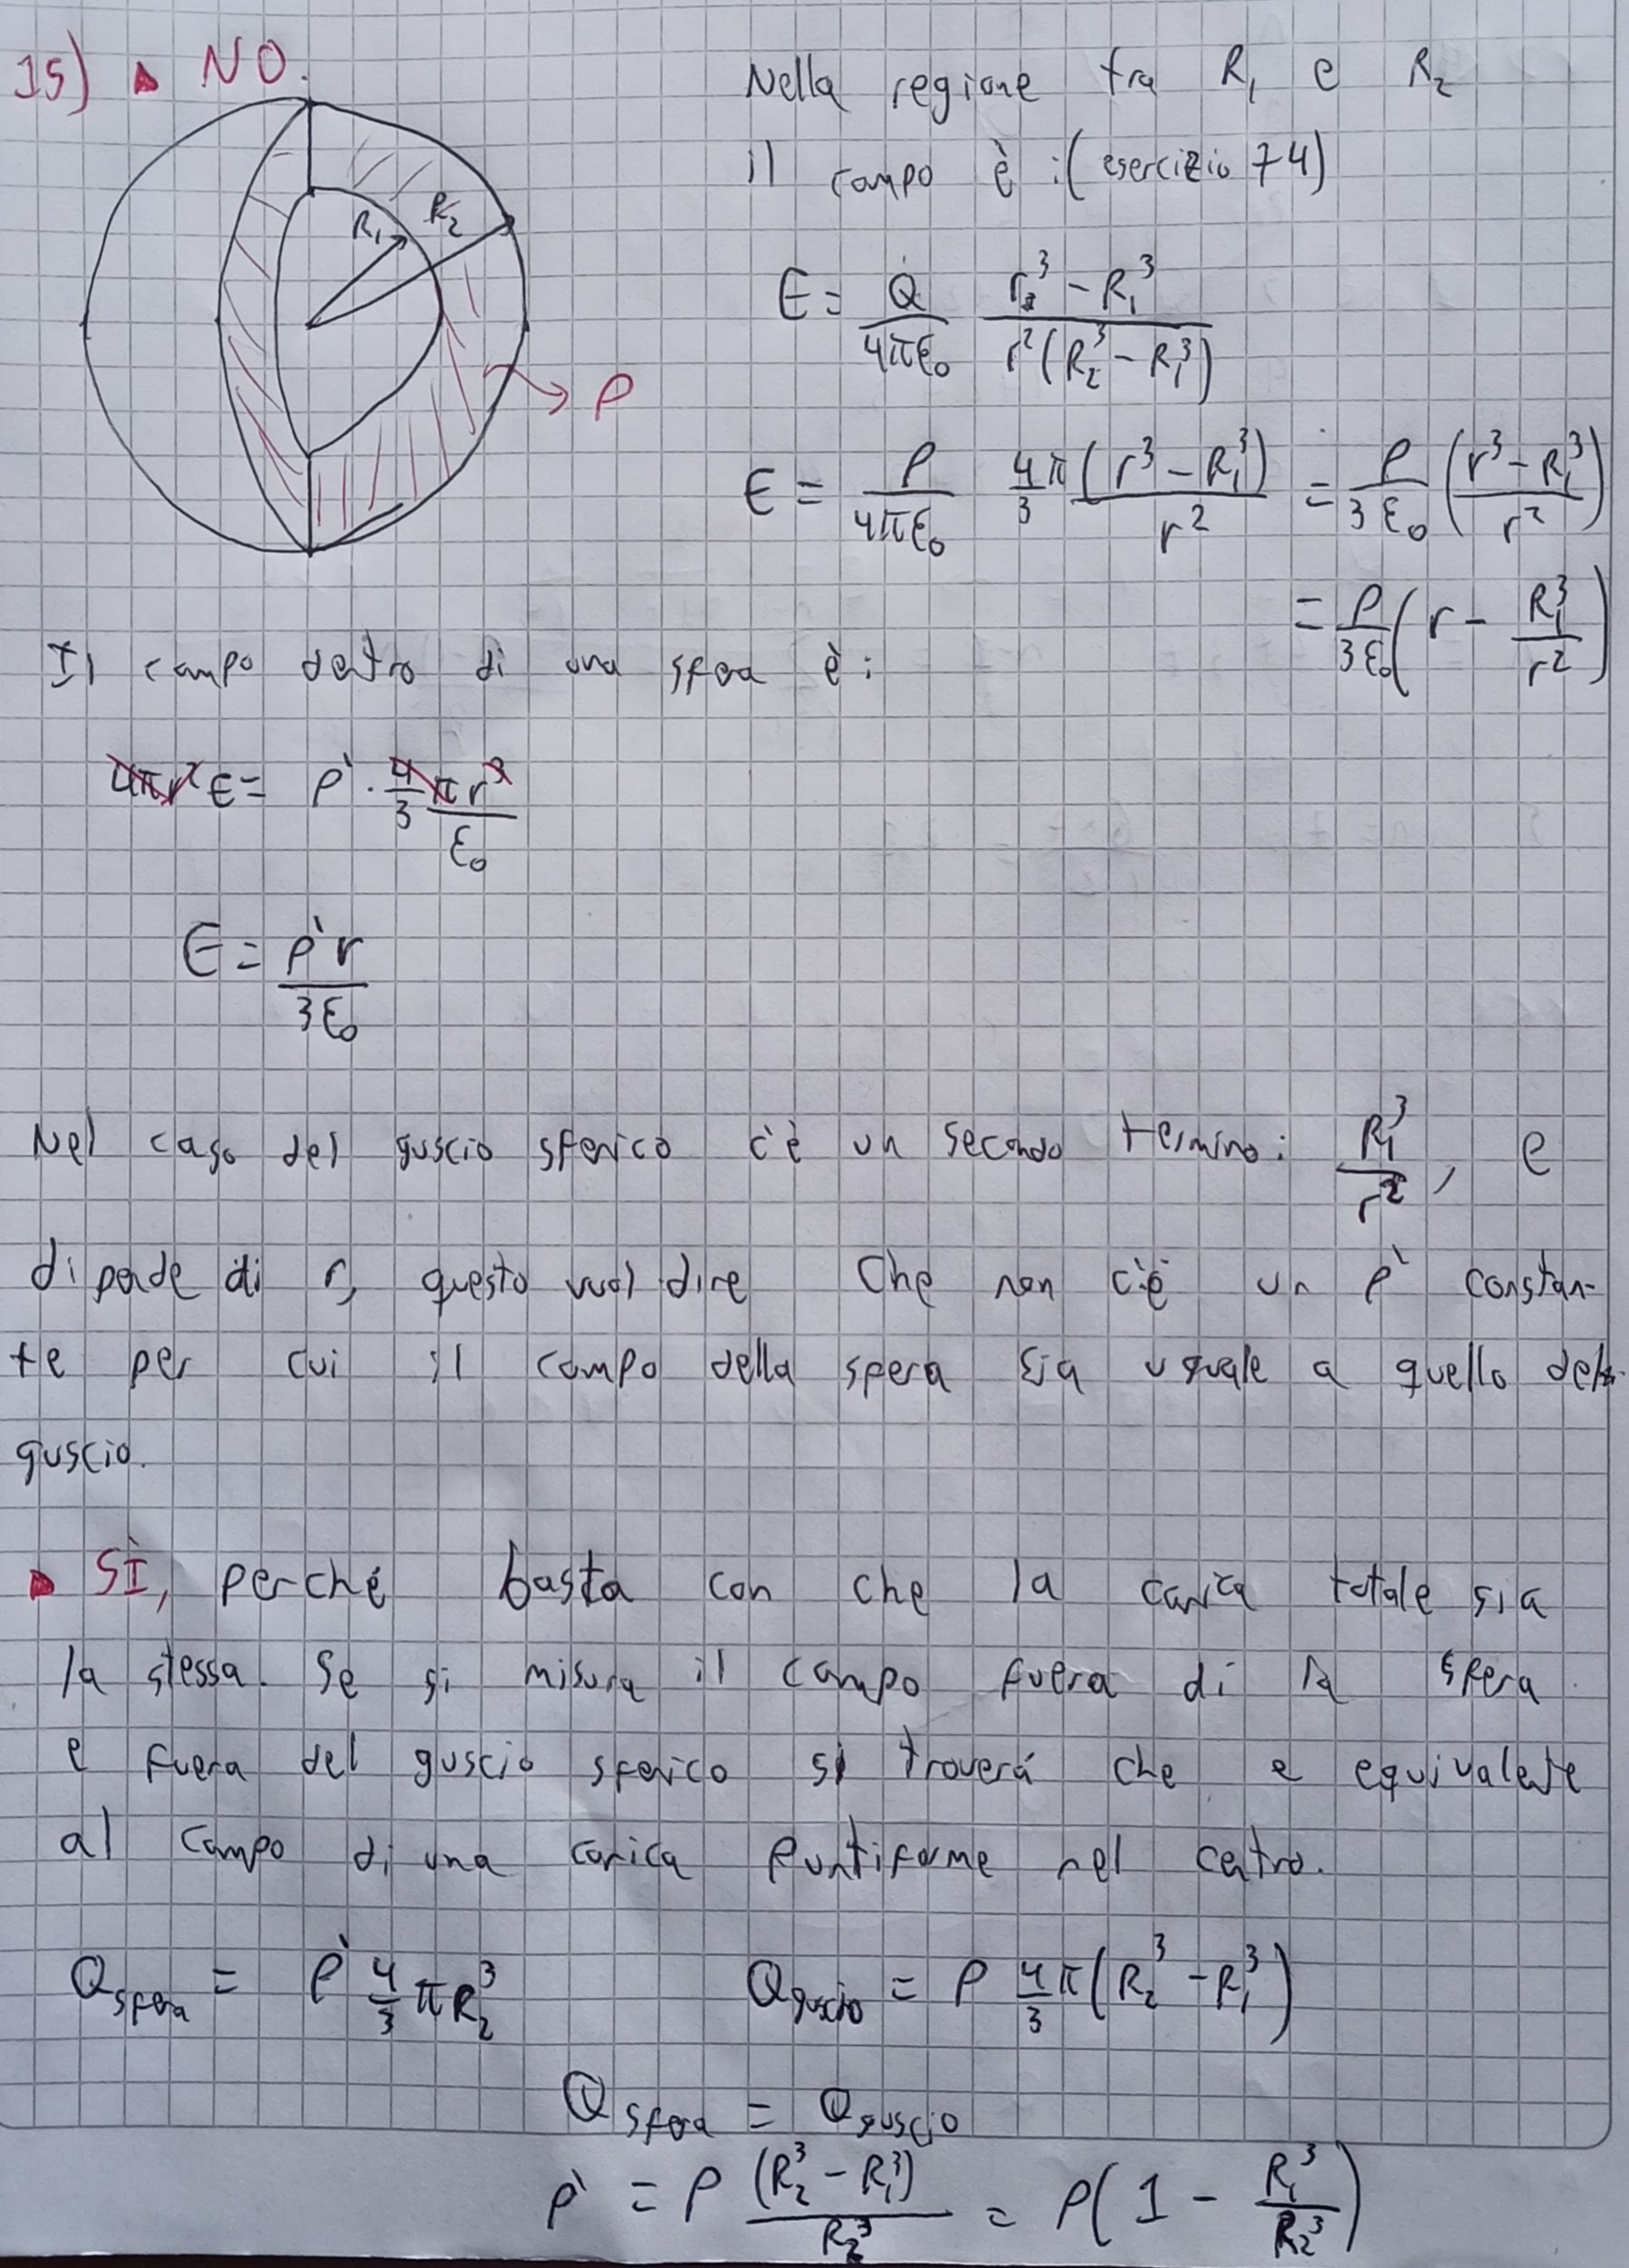 15) ▸ NO.
Nella regione fra R₁ e R₂
il campo è :( esercizio 74)
R₁ R₂
ρ
E = Q/(4πε₀) (r³ - R₁³)/(r²(R₂³ - R₁³))
E = ρ/(4πε₀) 4/3 π (r³ - R₁³)/r² = ρ/(3ε₀) ((r³ - R₁³)/r²)
= ρ/(3ε₀) (r - R₁³/r²)
Il campo dentro di una sfera è:
4πr² E = ρ̀ · 4/3 πr³/ε₀
E = ρ̀ r/(3ε₀)
Nel caso del guscio sferico c'è un secondo termino: R₁³/r², e
dipende di r, questo vuol dire che non c'è un ρ̀ constan-
te per cui il campo della sfera sia uguale a quello del
guscio.
▸ SÌ, perché basta con che la carica totale sia
la stessa. Se si misura il campo fuera di la sfera
e fuera del guscio sferico si troverá che e equivalente
al campo di una carica puntiforme nel centro.
Qsfera = ρ̀ 4/3 πR₂³ Qguscio = ρ 4/3 π(R₂³ - R₁³)
Qsfera = Qguscio
ρ̀ = ρ (R₂³ - R₁³)/R₂³ = ρ(1 - R₁³/R₂³)